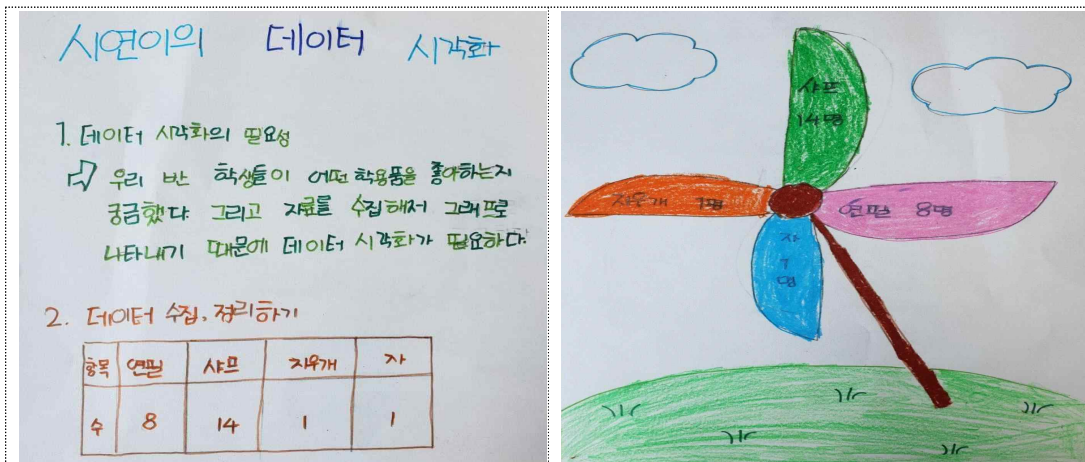 시연이의 데이터 시각화
1. 데이터 시각화의 필요성
⇨ 우리 반 학생들이 어떤 학용품을 좋아하는지
궁금했다. 그리고 자료를 수집해서 그래프로
나타내기 때문에 데이터 시각화가 필요하다.
2. 데이터 수집, 정리하기
항목 연필 샤프 지우개 자
수 8 14 1 1
샤프
14명
지우개 1명
연필 8명
자
1
명